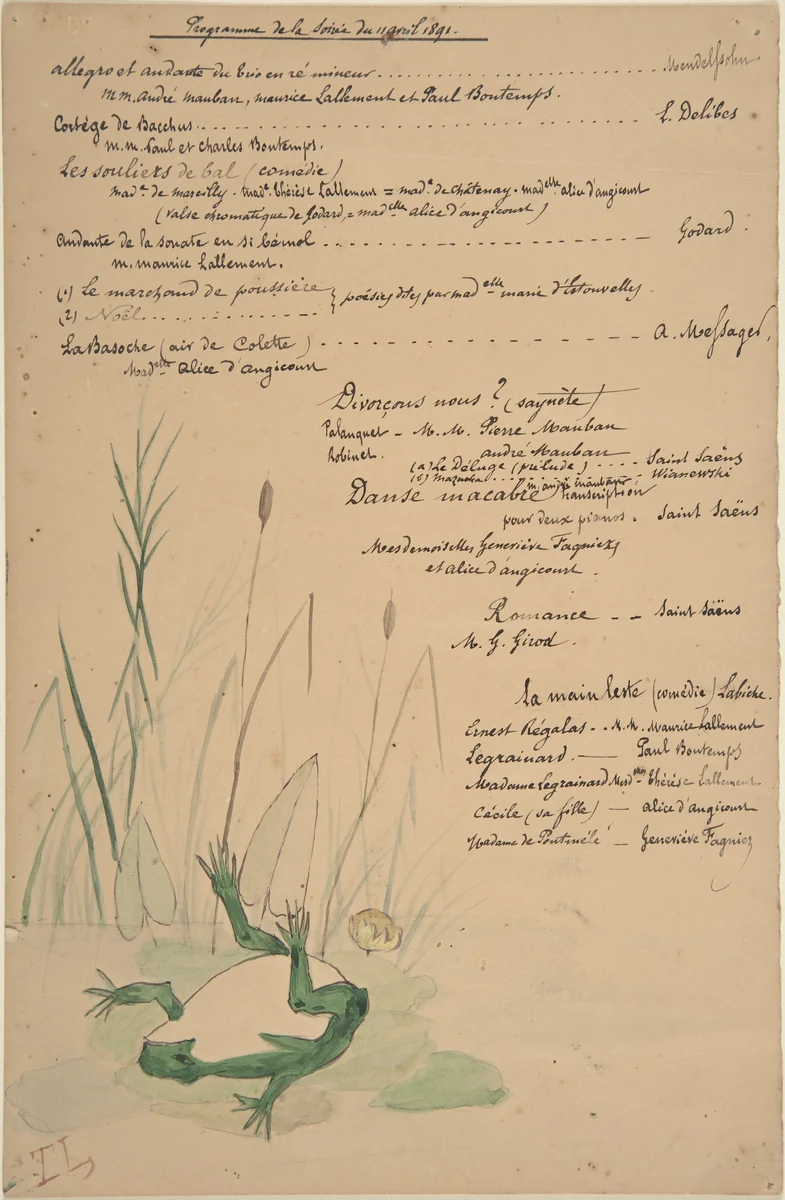 Programme de la Soirée du 11 avril 1891.
allegro et andante du trio en ré mineur ........ Mendelssohn
M.M. André Mauban, Maurice Lallement et Paul Bontemps.
Cortège de Bacchus ........ L. Delibes
M.M. Paul et Charles Bontemps.
Les souliers de bal (comédie)
Mad.e de Marcilly - Mad.e Thérèse Lallement = Mad.e de Châtenay - Mad.elle Alice d'Angicourt
(valse chromatique de Godard, = Mad.elle Alice d'Angicourt)
Andante de la sonate en si bémol ........ Godard.
M. Maurice Lallement.
(1) Le marchand de poussière } poésies dites par Mad.elle Marie d'Estouvelles.
(2) Noël ........
La Basoche (air de Colette) ........ A. Messager,
Mad.elle Alice d'Angicourt
Divorçons nous? (saynète)
Palanquet - M.M. Pierre Mauban
Robinet. André Mauban
(a) Le Déluge (prélude) ..... Saint Saëns
(2) Mazurka .... M. André Mauban .. Wianewski
Danse macabre transcription
pour deux pianos. Saint Saëns
Mesdemoiselles Geneviève Fagniez
et Alice d'Angicourt.
Romance - - Saint Saëns
M. G. Girod.
La main leste (comédie) Labiche.
Ernest Régalas - . M.M. Maurice Lallement
Legrainard. — Paul Bontemps
Madame Legrainard Mesd.elles Thérèse Lallement
Cécile (sa fille) — Alice d'Angicourt
Madame de Pontmêlé — Geneviève Fagniez
TL